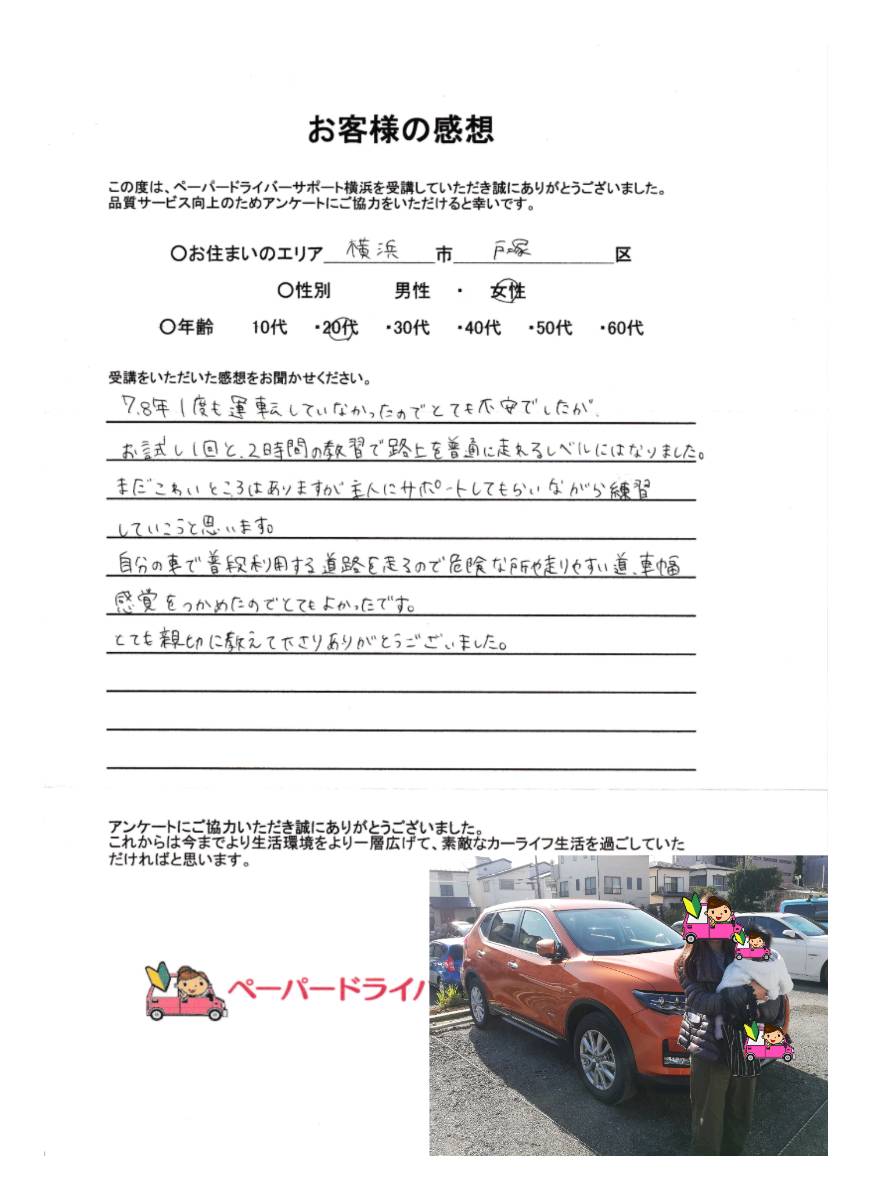 お客様の感想
この度は、ペーパードライバーサポート横浜を受講していただき誠にありがとうございました。
品質サービス向上のためアンケートにご協力をいただけると幸いです。
〇お住まいのエリア 横浜 市 戸塚 区
〇性別 男性 ・ 女性
〇年齢 10代 ・20代 ・30代 ・40代 ・50代 ・60代
受講をいただいた感想をお聞かせください。
7.8年1度も運転していなかったのでとても不安でしたが、
お試し1回と、2時間の教習で路上を普通に走れるレベルにはなりました。
まだこわいところはありますが主人にサポートしてもらいながら練習
していこうと思います。
自分の車で普段利用する道路を走るので危険な所や走りやすい道、車幅
感覚をつかめたのでとてもよかったです。
とても親切に教えて下さりありがとうございました。
アンケートにご協力いただき誠にありがとうございました。
これからは今までより生活環境をより一層広げて、素敵なカーライフ生活を過ごしていた
だければと思います。
ペーパードライバ